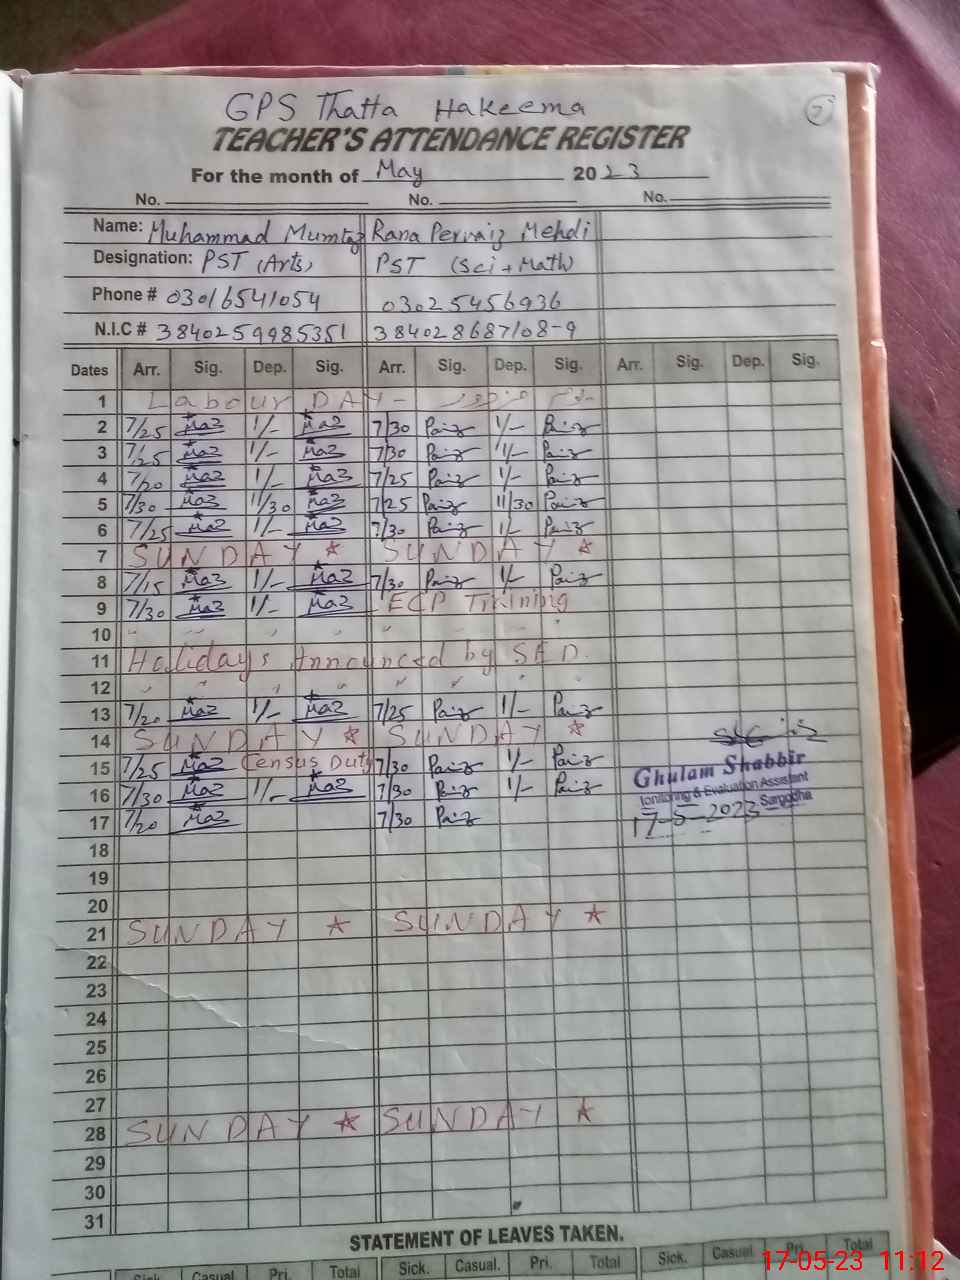 GPS Thatta Hakeema
7
TEACHER'S ATTENDANCE REGISTER
For the month of May 2023
No. No. No.
Name: Muhammad Mumtaz Rana Pervaiz Mehdi
Designation: PST (Arts) PST (Sci + Math)
Phone # 03016541054 03025456936
N.I.C # 3840259985351 384028687108-9
Dates Arr. Sig. Dep. Sig. Arr. Sig. Dep. Sig. Arr. Sig. Dep. Sig.
1 Labour DAY - یوم مزدور
2 7/25 1/- 7/30 1/-
3 7/25 1/- 7/30 1/-
4 7/20 1/- 7/25 1/-
5 7/30 11/30 7/25 11/30
6 7/25 1/- 7/30 1/-
7 SUNDAY SUNDAY
8 7/15 1/- 7/30 1/-
9 7/30 1/- ECP Training
10 " " " " " " " "
11 Holidays Announced by SED.
12 " " " " " " " "
13 7/20 1/- 7/25 1/-
14 SUNDAY SUNDAY
15 7/25 Census Duty 7/30 1/-
16 7/30 1/- 7/30 1/-
17 7/20 7/30
Ghulam Shabbir
Monitoring & Evaluation Assistant
Sargodha
17-5-2023
18
19
20
21 SUNDAY SUNDAY
22
23
24
25
26
27
28 SUNDAY SUNDAY
29
30
31
STATEMENT OF LEAVES TAKEN.
Sick. Casual Pri. Total Sick. Casual. Pri. Total Sick. Casual Pri. Total
17-05-23 11:12